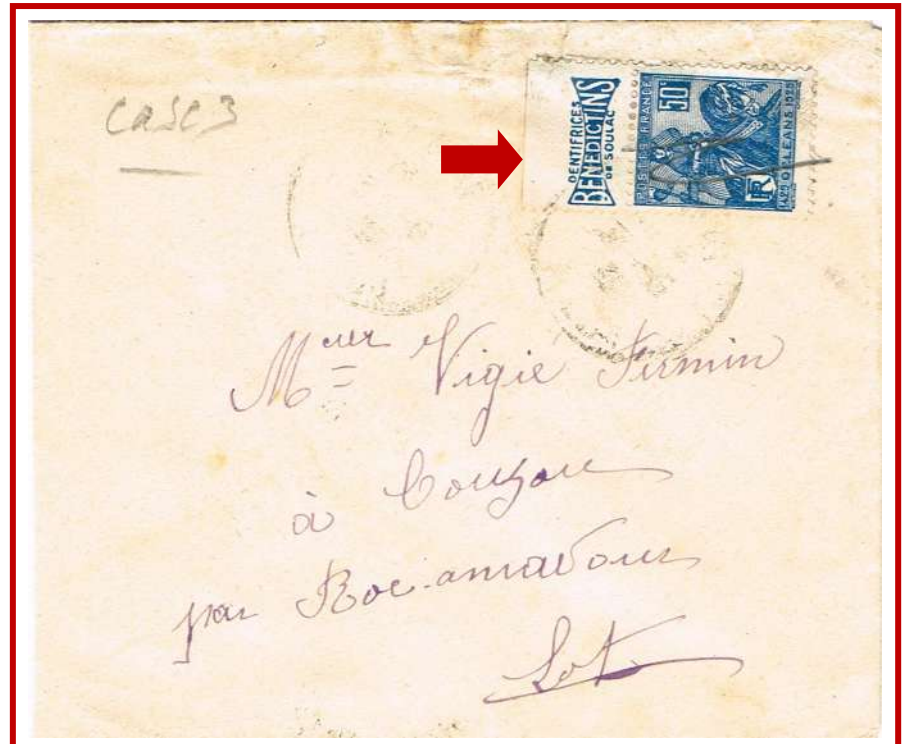 CASC3
DENTIFRICES
BÉNÉDICTINS
DE SOULAC
POSTES FRANCE
50c
RF
1429 ORLEANS 1929
Meur Vigie Firmin
à Couzou
par Roc-amadour
Lot